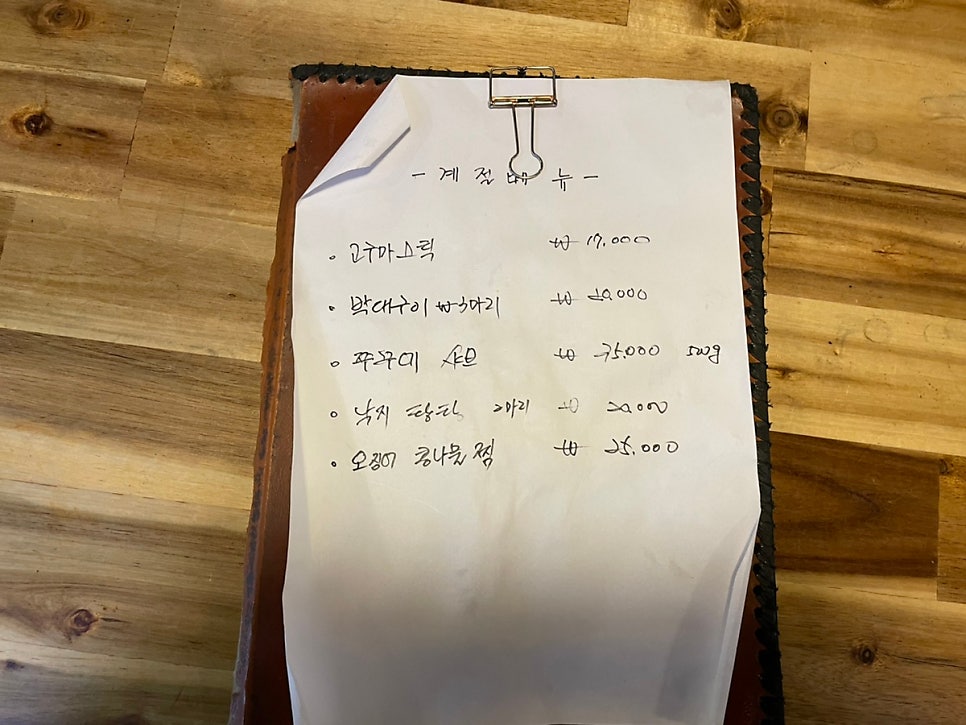 - 계절메뉴 -
· 고구마스틱 ₩ 17,000
· 박대구이 3마리 ₩ 20,000
· 쭈꾸미 샤브 ₩ 35,000 500g
· 낙지 탕탕 2마리 ₩ 20,000
· 오징어 콩나물찜 ₩ 25,000